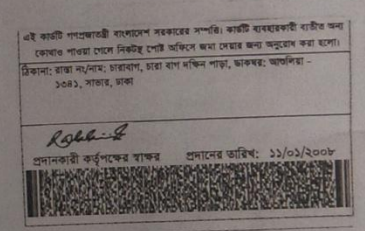 এই কার্ডটি গণপ্রজাতন্ত্রী বাংলাদেশ সরকারের সম্পত্তি। কার্ডটি ব্যবহারকারী ব্যতীত অন্য
কোথাও পাওয়া গেলে নিকটস্থ পোষ্ট অফিসে জমা দেয়ার জন্য অনুরোধ করা হলো।
ঠিকানা: রাস্তা নং/নাম: চারাবাগ, চারা বাগ দক্ষিন পাড়া, ডাকঘর: আশুলিয়া -
১৩৪১, সাভার, ঢাকা
প্রদানকারী কর্তৃপক্ষের স্বাক্ষর প্রদানের তারিখ: ১১/০১/২০০৮